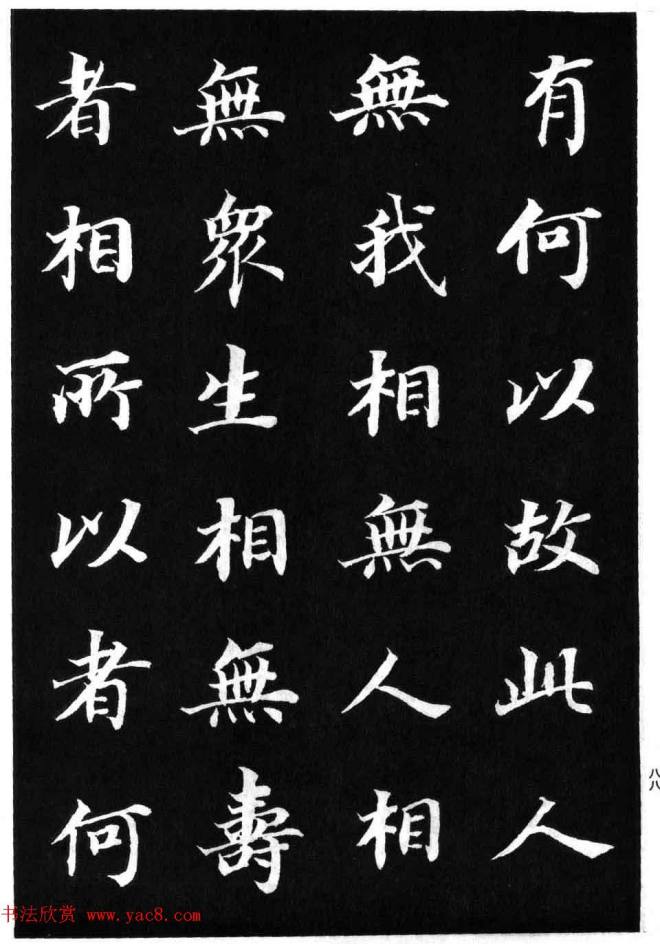 有何以故此人
無我相無人相
無眾生相無壽
者相所以者何
八八
书法欣赏 www.yac8.com